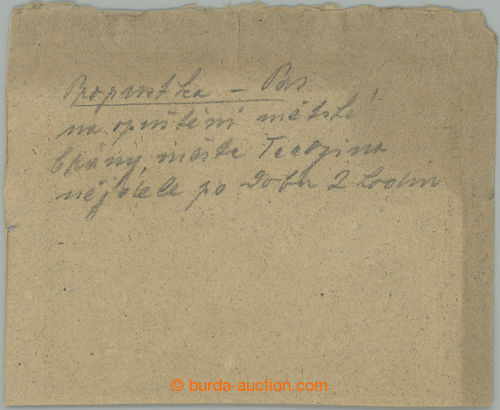 Propustka – Pas
na opuštění městské
brány města Terezína
nejdéle po dobu 2 hodin
© burda-auction.com